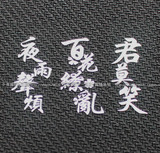 君莫笑
百花繚亂
夜雨聲煩